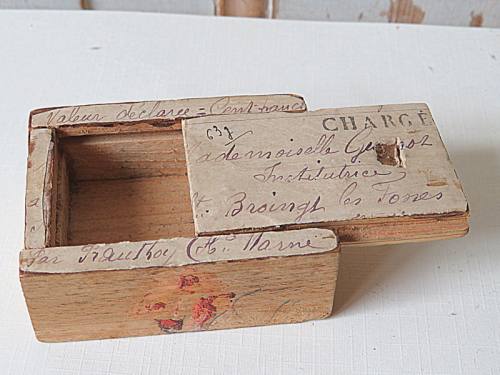 Valeur déclarée = Cent francs
CHARGÉ
637
Mademoiselle
Institutrice
St. Broingt les Fosses
par Prauthoy (Hte Marne